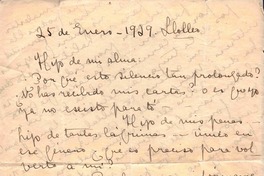 25 de Enero - 1929. Llolleo
Hijo de mi alma:
Por qué este silencio tan prolongado?
No has recibido mis cartas? O es que yo
ya no existo para tí
Hijo de mis penas -
hijo de tantas lágrimas -
que es preciso para vol
verte a mí?